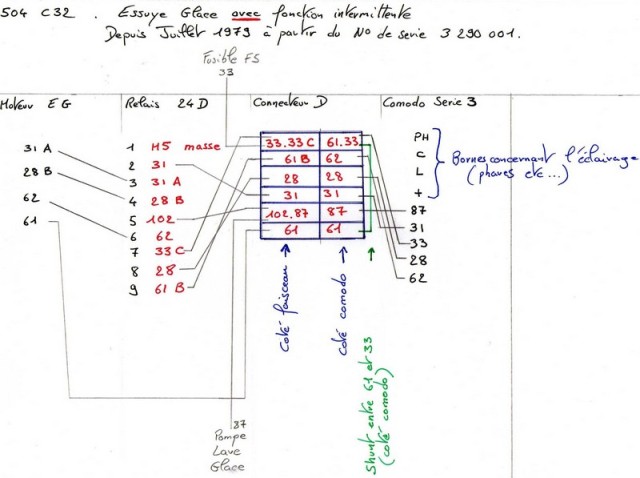 504 C32. Essuye Glace avec fonction intermittente
Depuis Juillet 1979 à partir du N° de serie 3 290 001.
Fusible F5
33
Moteur EG
Relais 24 D
Connecteur D
Comodo Serie 3
31 A
28 B
62
61
1 H5 masse
2 31
3 31 A
4 28 B
5 102
6 62
7 33 C
8 28
9 61 B
33.33 C 61.33
61 B 62
28 28
31 31
102.87 87
61 61
PH
C
L
+
Bornes concernant l'éclairage
(phares etc...)
87
31
33
28
62
Coté faisceau
coté comodo
Shunt entre 61 et 33
(coté comodo)
37
Pompe
Lave
Glace